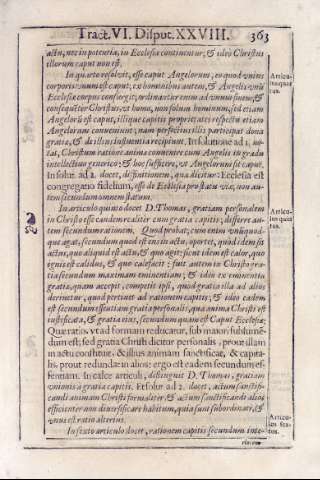 Tract. VI. Disput. XXVIII. 363
actu, nec in potentia, in Ecclesia continentur; & ideò Christus
illorum caput non est.
In quarto resolvit, esse caput Angelorum; eo quod unius
corporis unum est caput; ex hominibus autem, & Angelis unũ
Ecclesiæ corpus consurgit; ordinantur enim ad unum finem; &
consequẽter Christus, ut homo, non solum hominum, sed etiam
Angelorũ est caput, illique capitis proprietates respectu etiam
Angelorum conveniunt; nam perfectius illis participat dona
gratiæ, & de illius influentia recipiunt. In solutione ad 1. no-
tat, Christum ratione animæ convenire cum Angelis in gradu
intellectivo generico; & hoc sufficere, ut Angelorum sit caput.
In solut. ad 2. docet, distinctionem, qua dicitur: Ecclesia est
congregatio fidelium, esse de Ecclesia pro statu viæ, non au-
tem secundum omnem statum.
In articulo quinto docet D. Thomas, gratiam personalem
in Christo esse eandem realiter cum gratia capitis; differre au-
tem secundum rationem. Quod probat; cum enim unũquod-
que agat, secundum quod est ens in actu, oportet, quòd idem sit
actus, quo aliquid est actu, & quo agit; sicut idem est calor, quo
ignis est calidus, & quo calefacit: fuit autem in Christo gra-
tia secundum maximam eminentiam; & ideò ex eminentia
gratiæ, quam accepit, competit ipsi, quod gratia illa ad alios
derivetur, quod pertinet ad rationem capitis; & ideò eadem
est secundum essentiam gratia personalis, qua anima Christi est
iustificata, & gratia eius, secundum quam est Caput Ecclesiæ;
Quæ ratio, ut ad formam reducatur, sub maiori subsumẽ-
dum est; sed gratia Christi dicitur personalis, prout illam
in actu constituit, & illius animam sanctificat, & capita-
lis, prout redundat in alios: ergo est eadem secundum es-
sentiam. In calce articuli, distinguit D. Thomas, gratiam
unionis à gratia capitis. Et solut. ad 2. docet, actum sanctifi-
candi animam Christi formaliter, & actum sanctificandi alios
efficienter non diversificare habitum, quia sunt subordinati, &
unus est ratio alterius.
In sexto articulo docet, rationem capitis secundum inte-
Articu-
lus quar-
tus.
Articu-
lus quin-
tus.
Articu-
lus sex-
tus.